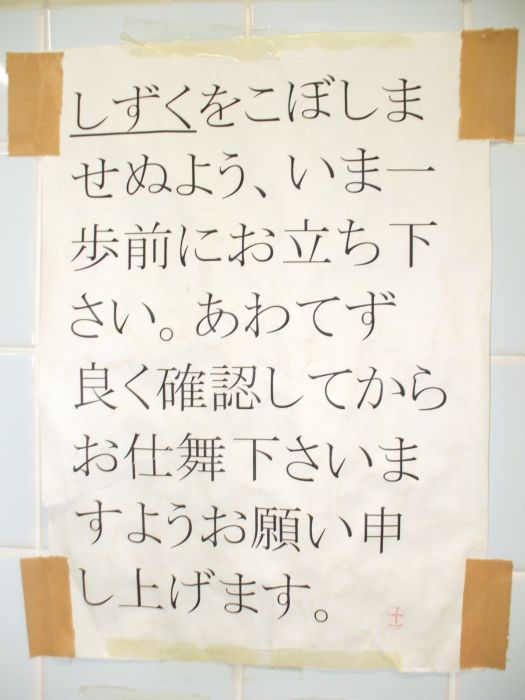 しずくをこぼしま
せぬよう、いま一
歩前にお立ち下
さい。あわてず
良く確認してから
お仕舞下さいま
すようお願い申
し上げます。